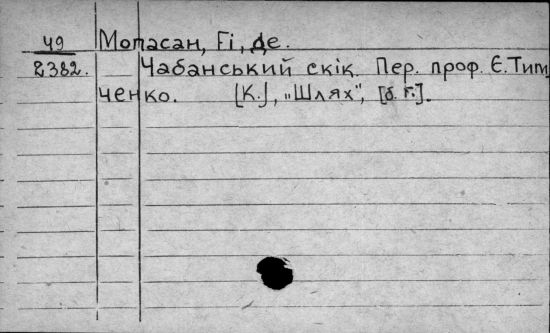 49 Мопасан, Гі, де.
2382. Чабанський скік. Пер. проф. Є. Тим
ченко. [К.], „Шлях", [б. г.].